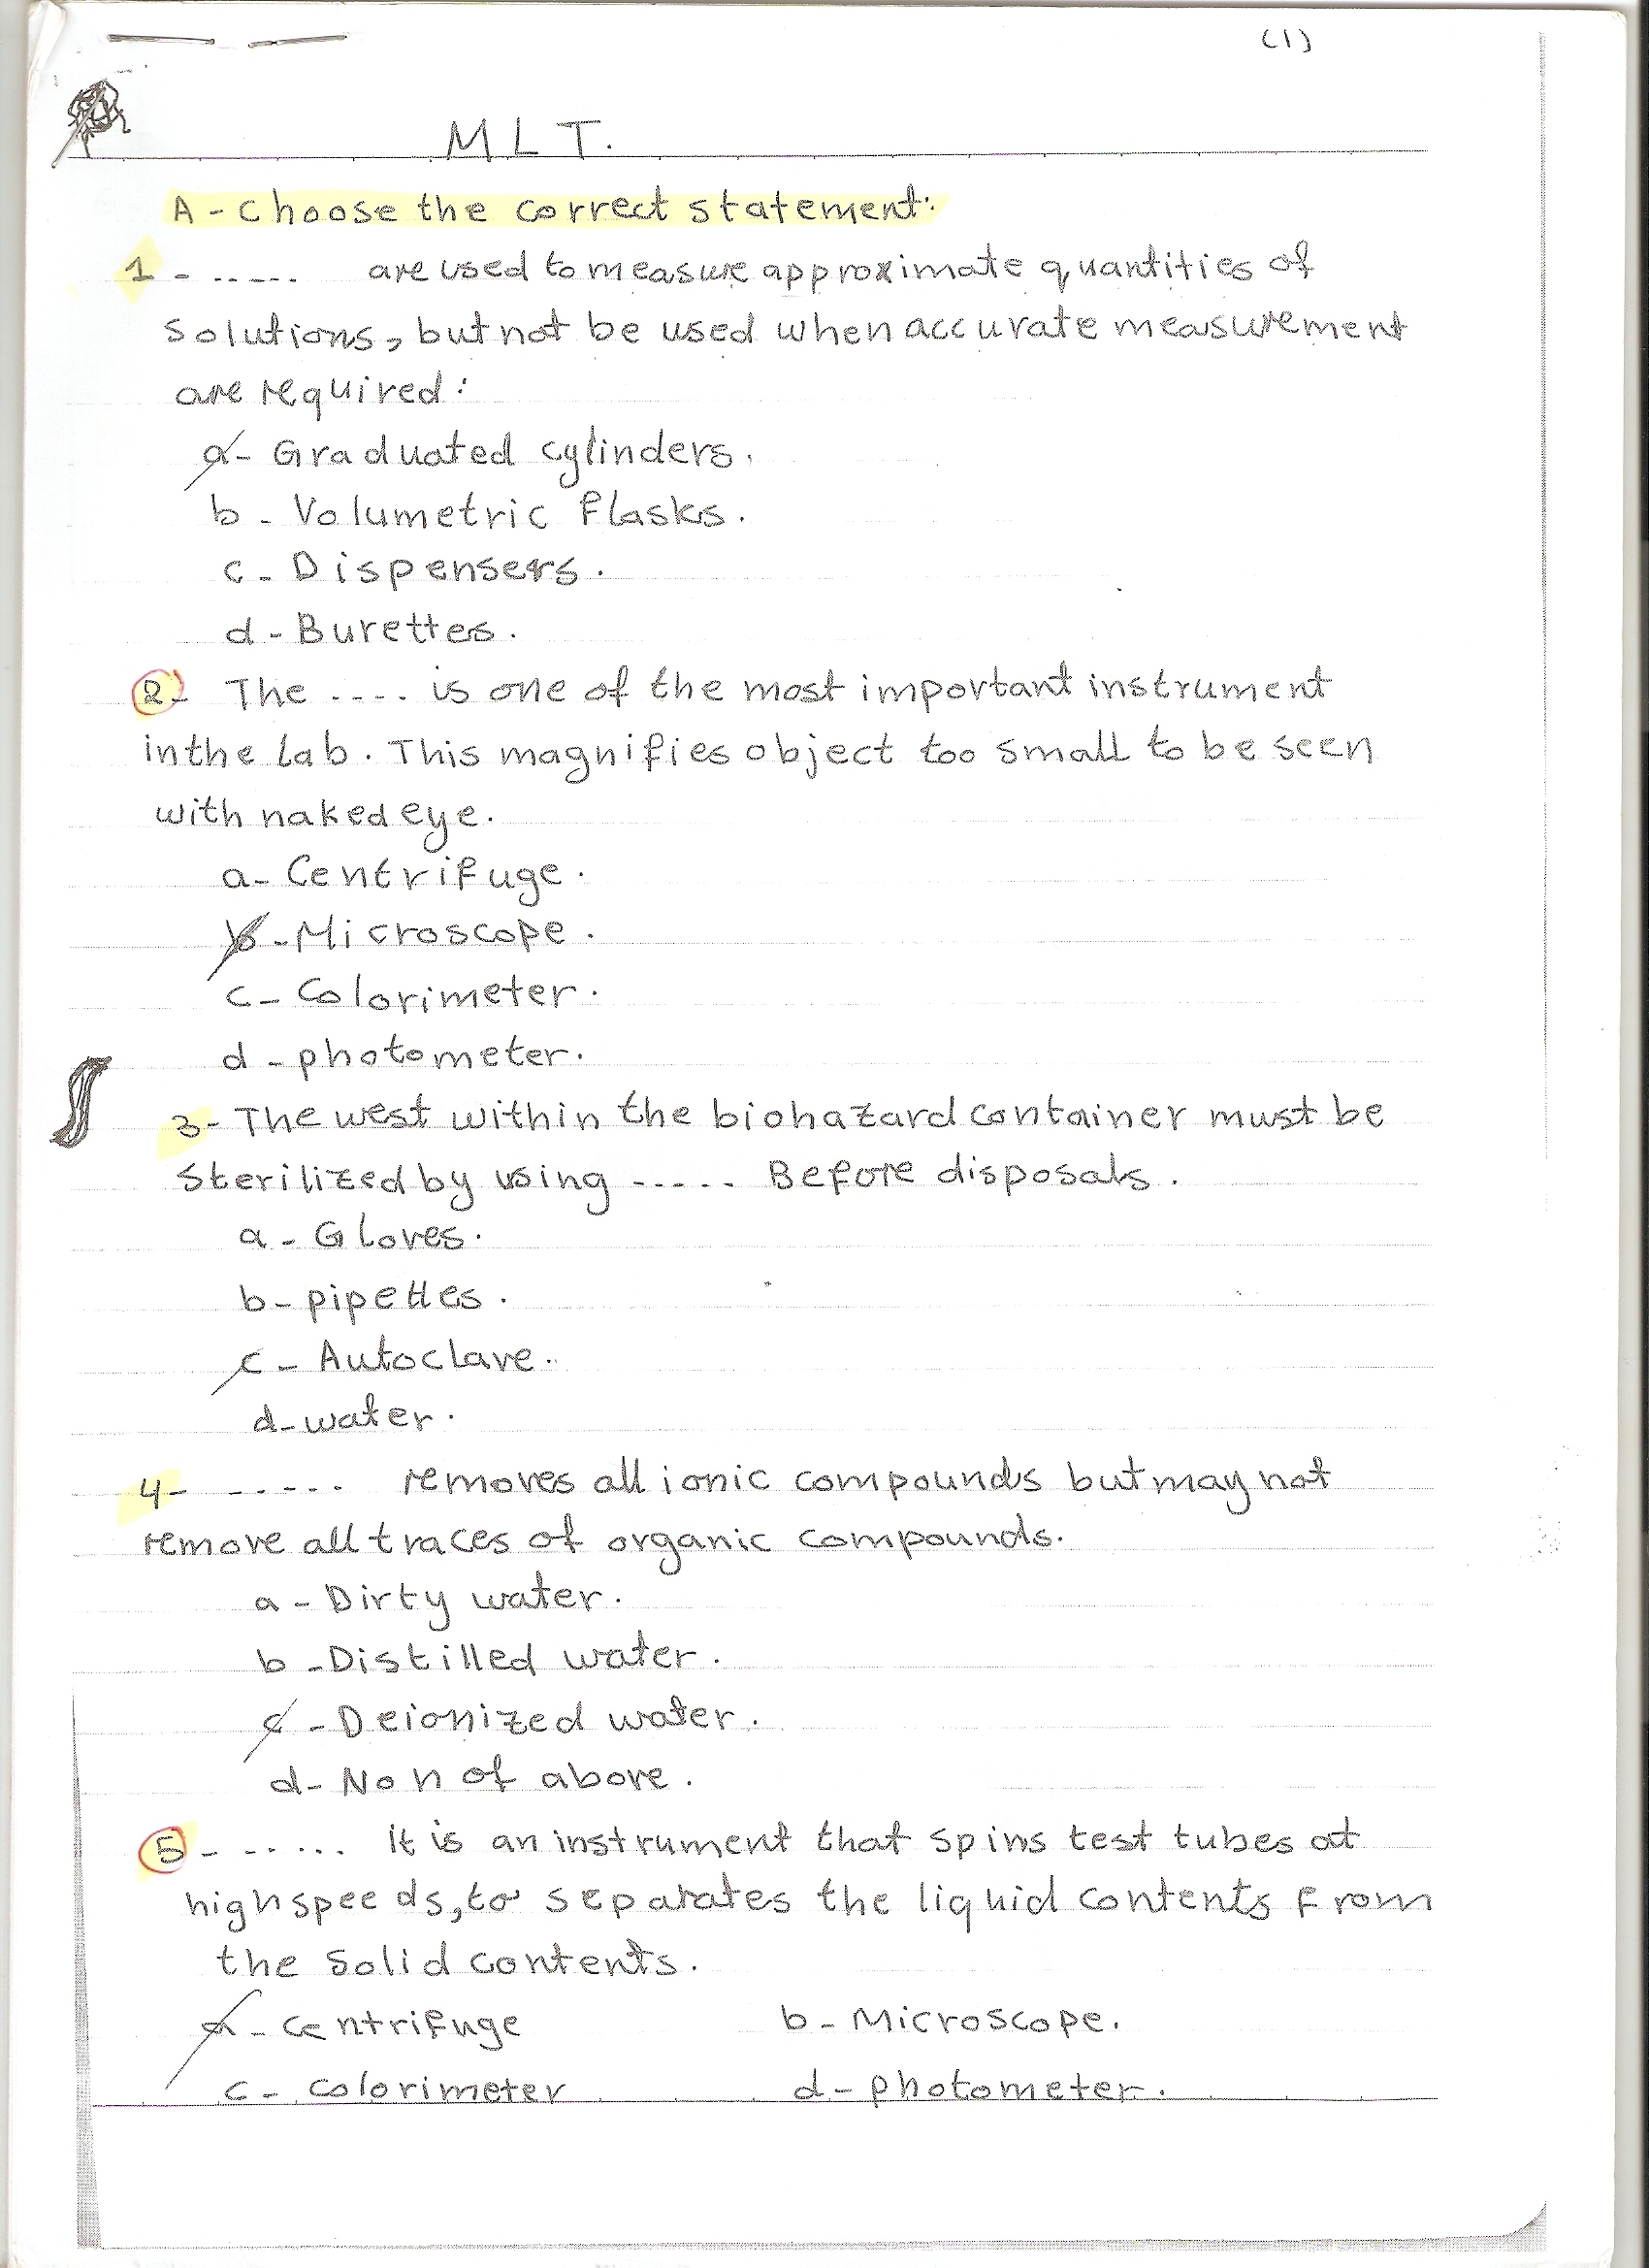 (1)
MLT.
A - Choose the correct statement:
1 - ..... are used to measure approximate quantities of
solutions, but not be used when accurate measurement
are required:
a - Graduated cylinders.
b - Volumetric flasks.
c - Dispensers.
d - Burettes.
2 - The .... is one of the most important instrument
in the lab. This magnifies object too small to be seen
with naked eye.
a - Centrifuge.
b - Microscope.
c - Colorimeter.
d - photometer.
3 - The west within the biohazard container must be
sterilized by using ..... Before disposals.
a - Gloves.
b - pipettes.
c - Autoclave.
d - water.
4 - ..... removes all ionic compounds but may not
remove all traces of organic compounds.
a - Dirty water.
b - Distilled water.
c - Deionized water.
d - Non of above.
5 - ...... it is an instrument that spins test tubes at
high speeds, to separates the liquid contents from
the solid contents.
a - Centrifuge b - Microscope.
c - colorimeter d - photometer.